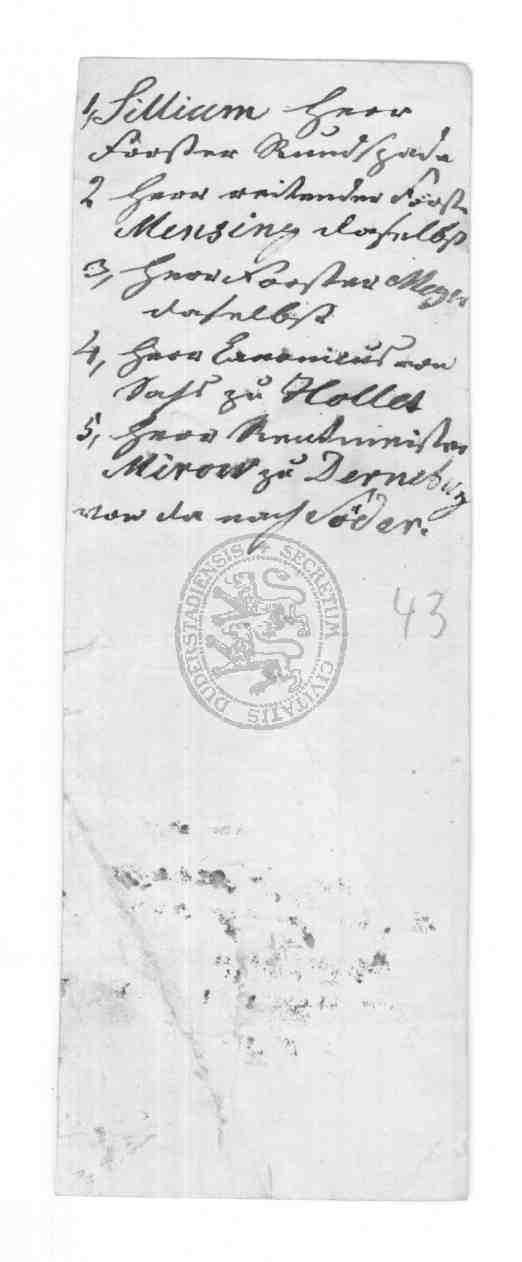 1, Sillium Herr
Förster Rundspade
2 Herr reitender Först
Mensing daselbst
3, Herr Förster Meyer
daselbst
4, Herr Canonicus von
zu Holle
5, Herr Rentmeister
Mirow zu Derneburg
von da nach Söder.
43
SECRETUM CIVITATIS DUDERSTADIENSIS